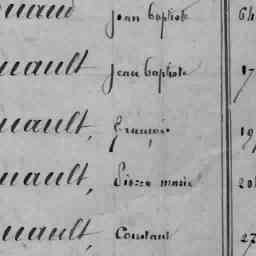 uaud jean baptiste 6
uault jean baptiste 17
uault, françois 19
uault, Pierre marie 20
uault, Constant 27